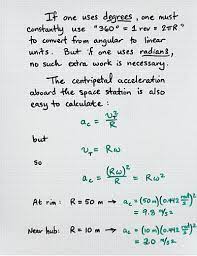 If one uses degrees, one must
constantly use "360° = 1 rev = 2πR"
to convert from angular to linear
units. But if one uses radians,
no such extra work is necessary.
The centripetal acceleration
aboard the space station is also
easy to calculate:
a_c = v_T² / R
but
v_T = Rω
so
a_c = (Rω)² / R = Rω²
At rim: R = 50 m → a_c = (50 m)(0.442 rad/s)²
= 9.8 m/s²
Near hub: R = 10 m → a_c = (10 m)(0.442 rad/s)²
= 2.0 m/s²